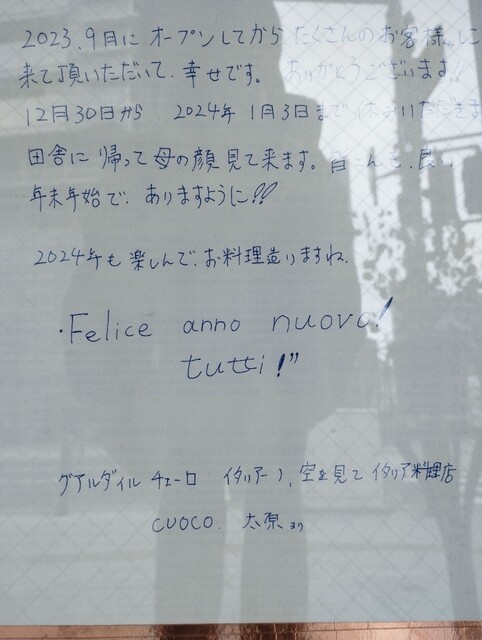 2023.9月に オープンしてから たくさんのお客様に
来て頂いただいて、幸せです。 ありがとうございます!!
12月30日から 2024年 1月3日まで 休みいただきま
田舎に帰って母の顔見て来ます。皆さんも、良い
年末年始で、ありますように!!
2024年も楽しんで、お料理造りますね、
・Felice anno nuovo!
tutti!”
グアルダイル チェーロ イタリアーノ、空を見て イタリア料理店
CUOCO. 太原より